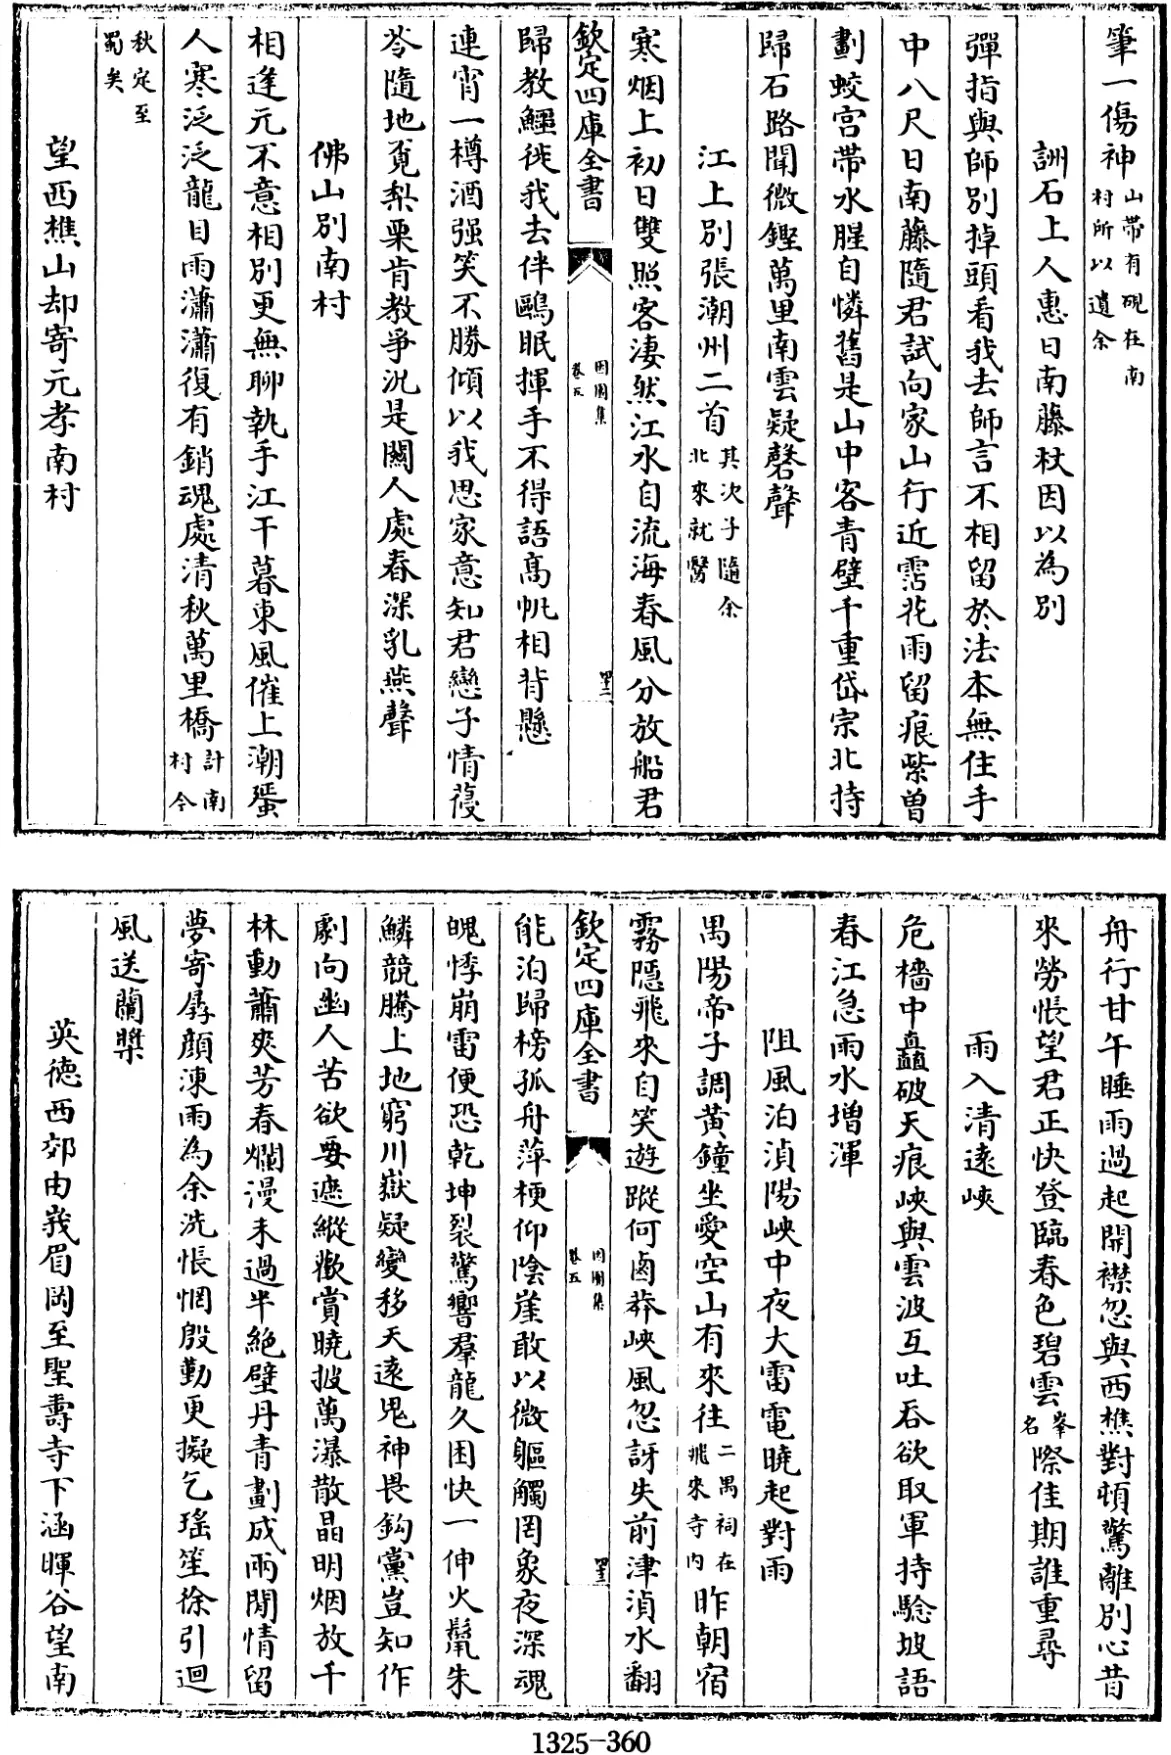 筆一傷神山帶有硯在南村所以遺余
詶石上人惠日南藤杖因以為別
彈指與師別掉頭看我去師言不相留於法本無住手
中八尺日南藤隨君試向家山行近霑花雨留痕紫曾
劃蛟宮帶水腥自憐舊是山中客青壁千重岱宗北持
歸石路聞微鏗萬里南雲疑磬聲
江上別張潮州二首其次子隨余北來就醫
寒烟上初日雙照客淒然江水自流海春風分放船君
欽定四庫全書
因園集
卷五
歸教鱷徙我去伴鷗眠揮手不得語高帆相背懸
連宵一樽酒强笑不勝傾以我思家意知君戀子情葠
苓隨地覓梨栗肯教爭況是關人處春深乳燕聲
佛山別南村
相逢元不意相別更無聊執手江干暮東風催上潮蜑
人寒泛泛龍目雨瀟瀟復有銷魂處清秋萬里橋計南村今
秋定至蜀矣
望西樵山却寄元孝南村
舟行甘午睡雨過起開襟忽與西樵對頓驚離別心昔
來勞悵望君正快登臨春色碧雲峯名際佳期誰重尋
雨入清遠峽
危檣中矗破天痕峽與雲波互吐吞欲取軍持驗坡語
春江急雨水增渾
阻風泊湞陽峽中夜大雷電曉起對雨
禺陽帝子調黃鐘坐愛空山有來往二禺祠在飛來寺内昨朝宿
霧隱飛來自笑遊蹤何鹵莽峽風忽訝失前津湞水翻
欽定四庫全書
因園集
卷五
能泊歸榜孤舟萍梗仰陰崖敢以微軀觸罔象夜深魂
魄悸崩雷便恐乾坤裂驚響羣龍久困快一伸火鬣朱
鱗競騰上地窮川嶽疑變移天遠鬼神畏鈎黨豈知作
劇向幽人苦欲要遮縱歡賞曉披萬瀑散晶明烟放千
林動蕭爽芳春爛漫未過半絶壁丹青劃成兩閒情留
夢寄孱顔涷雨為余洗悵惘殷勤更擬乞瑤笙徐引迴
風送蘭槳
英德西郊由峩眉岡至聖壽寺下涵暉谷望南
1325-360